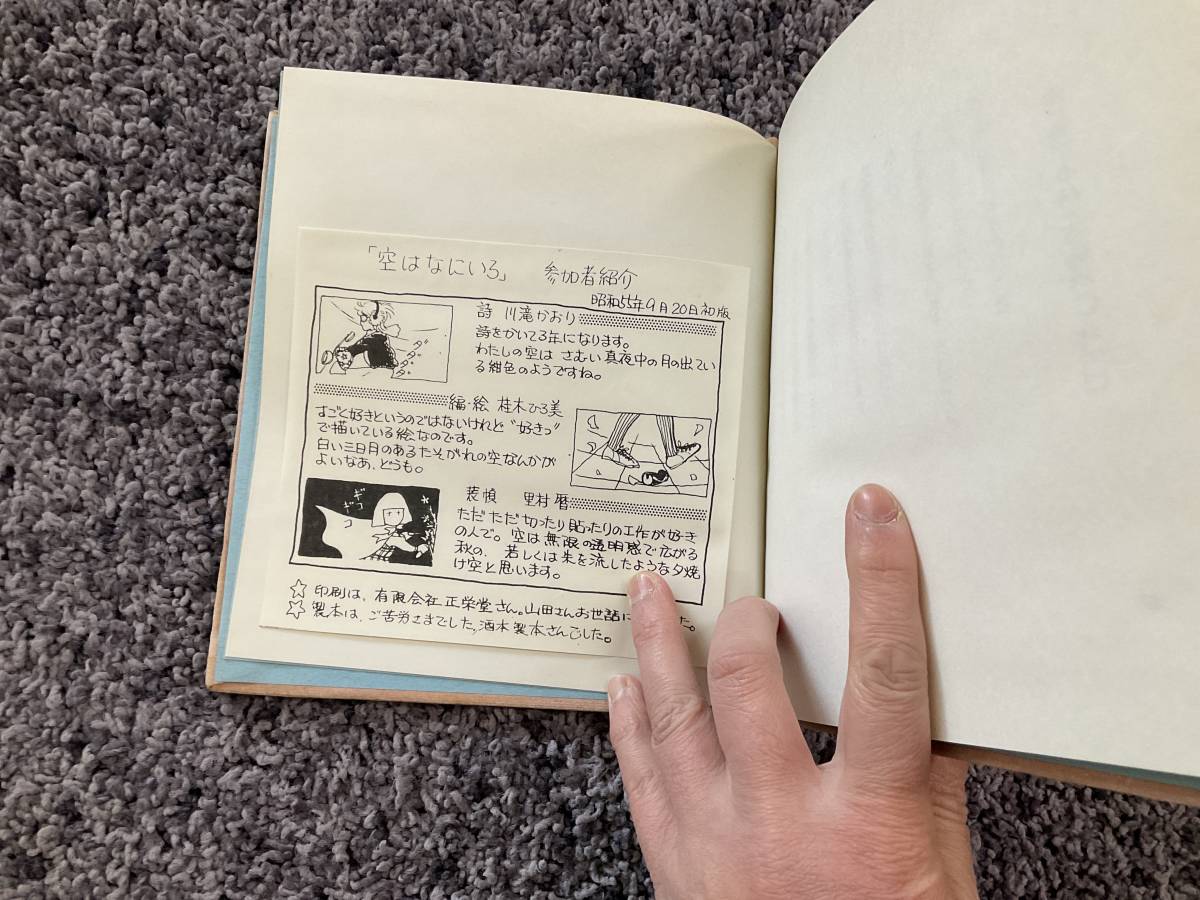 「空はなにいろ」 参加者紹介
昭和55年9月20日初版
詩 川滝かおり
詩をかいて3年になります。
わたしの空は さむい 真夜中の月の出てい
る紺色のようですね。
ダダダダ
編・絵 桂木ひろ美
すごく好きというのではないけれど “好きっ”
で描いている絵なのです。
白い三日月のあるたそがれの空なんかが
よいなあ、どうも。
ギコギコ
装幀 里村 暦
ただ ただ 切ったり 貼ったりの工作が好き
の人で。空は無限の透明感で広がる
秋の、若しくは朱を流したような夕焼
け空と思います。
☆ 印刷は、有限会社 正栄堂さん。山田さんお世話に した。
☆ 製本は、ご苦労さまでした、酒本製本さんでした。